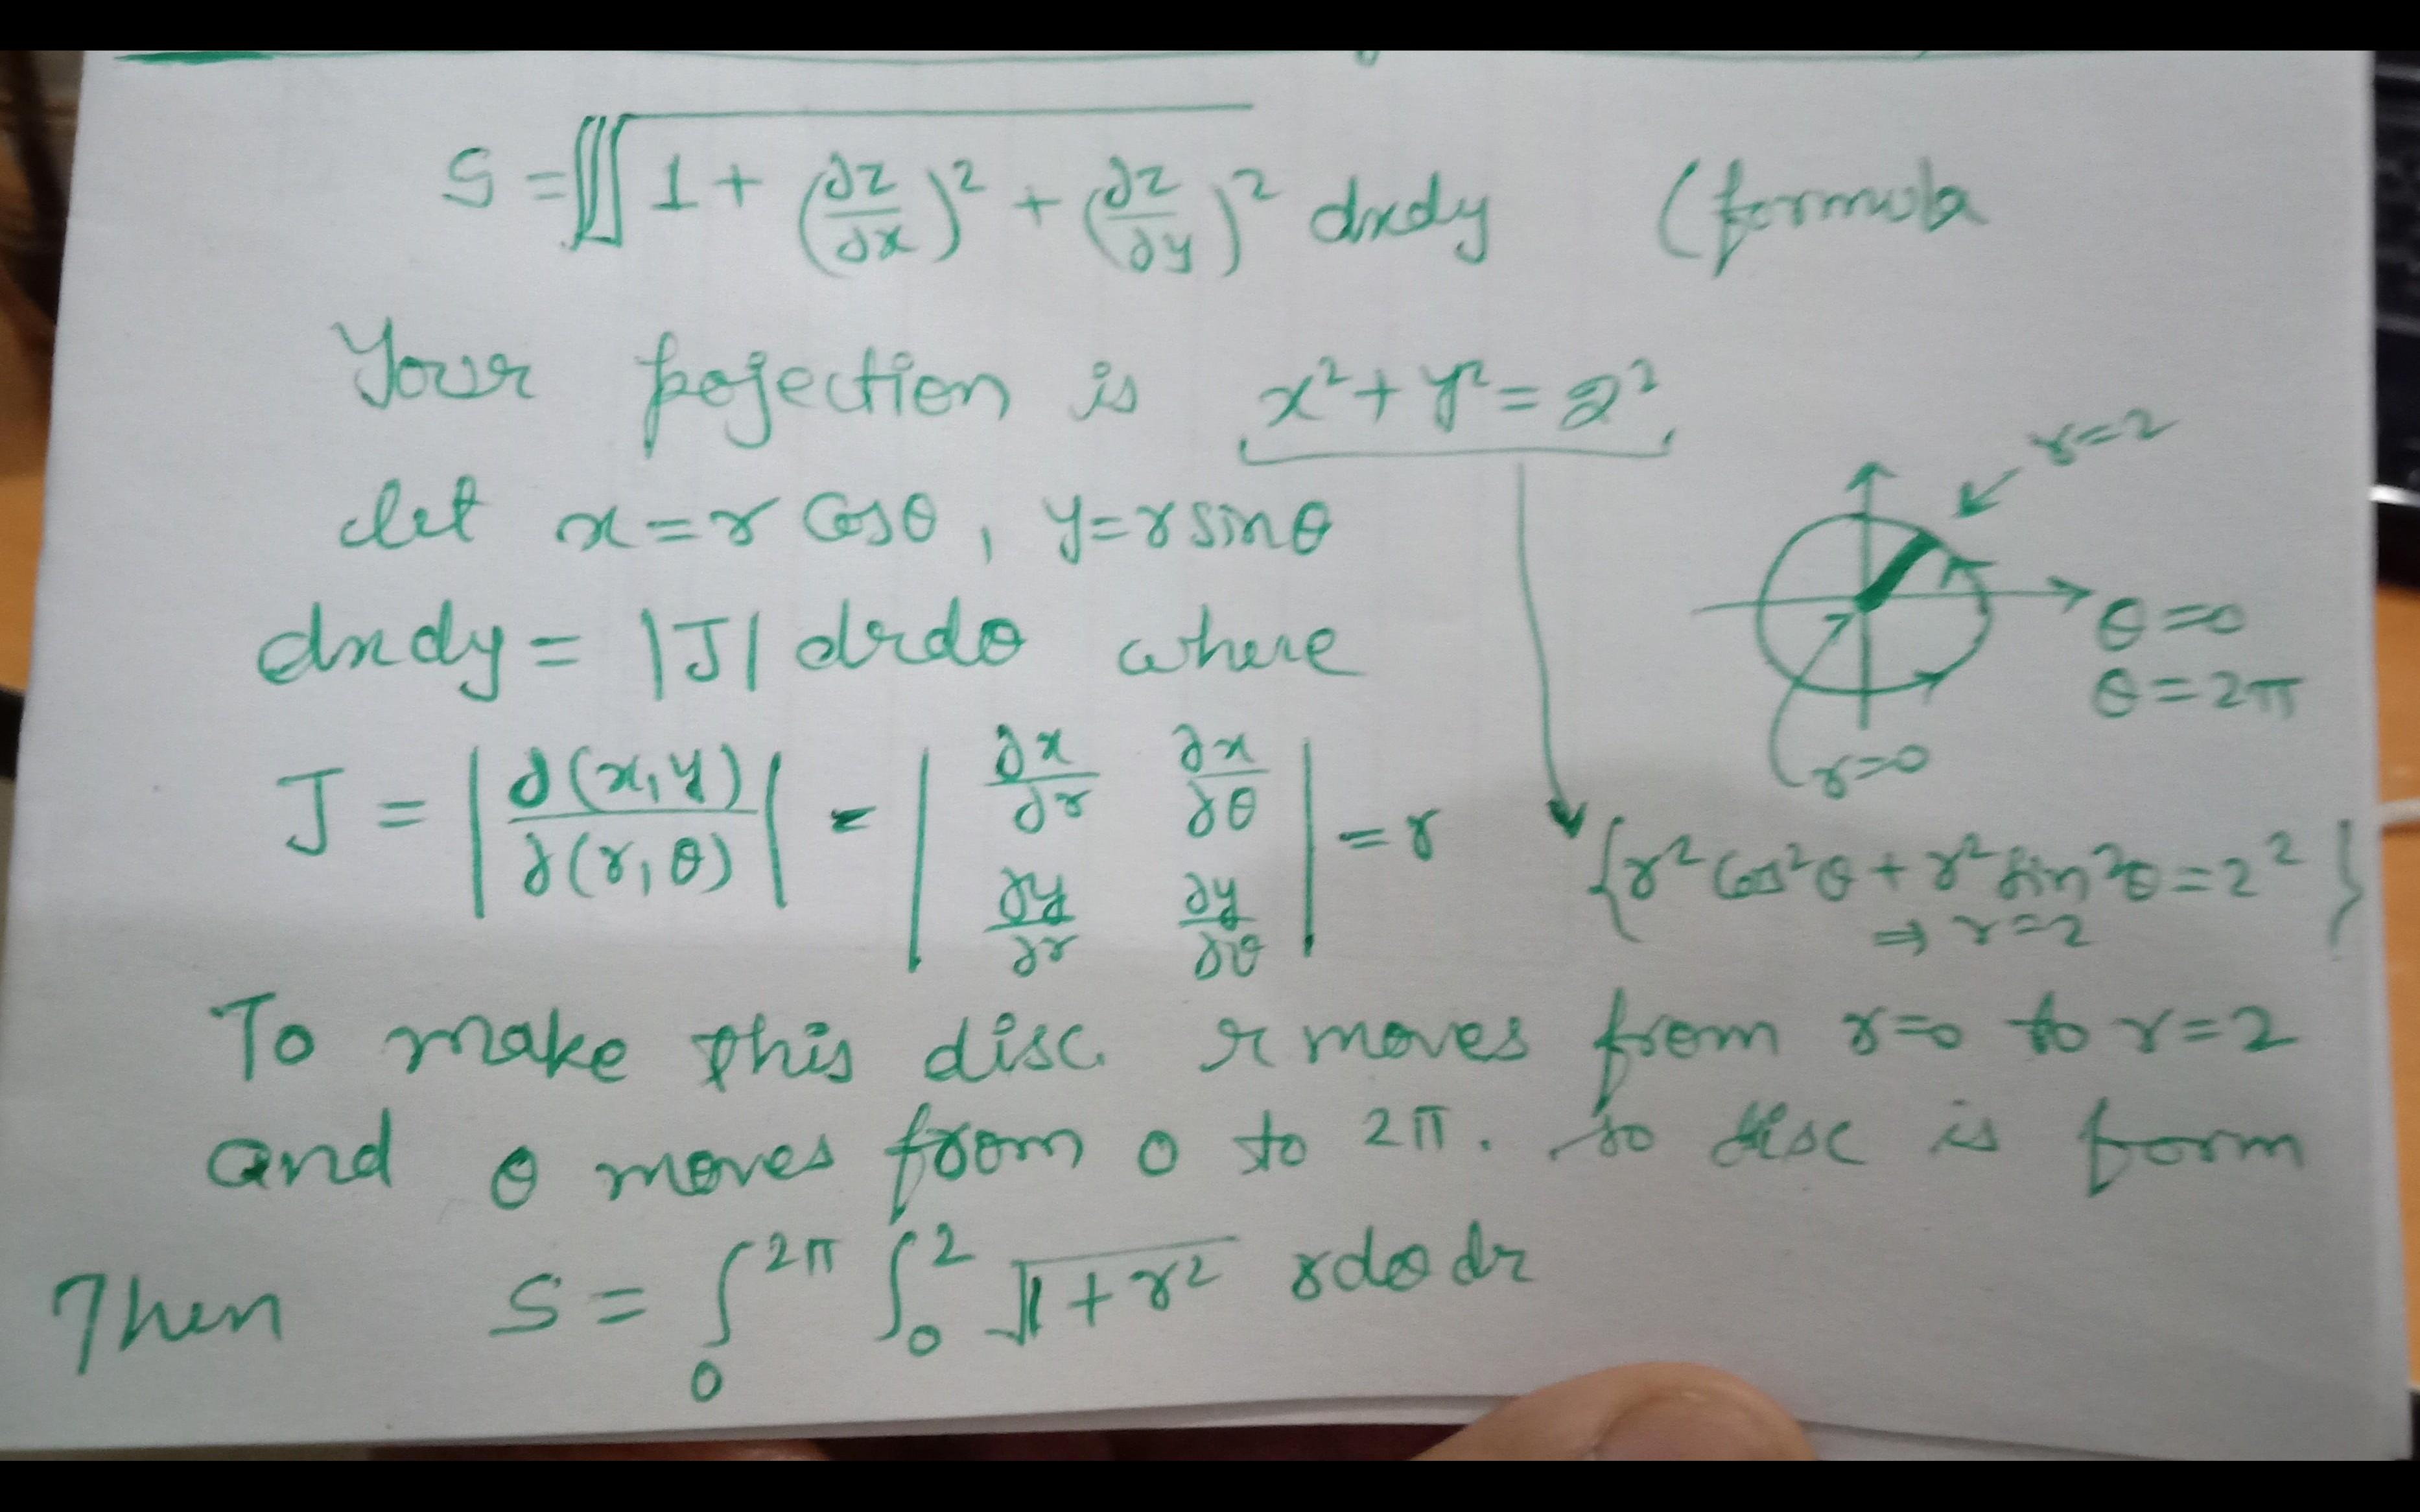 S = ∬ √(1 + (∂z/∂x)² + (∂z/∂y)²) dxdy (formula
Your pojection is x² + y² = 2²
let x = r Cosθ, y = r sinθ
r = 2
dxdy = |J| drdθ where
θ = 0
θ = 2π
r = 0
J = |∂(x,y)/∂(r,θ)| = |∂x/∂r ∂x/∂θ ∂y/∂r ∂y/∂θ| = r
{r² Cos²θ + r² sin²θ = 2²}
⇒ r = 2
To make this disc r moves from r=0 to r=2
and θ moves from 0 to 2π. so disc is form
Then S = ∫₀^2π ∫₀^2 √(1 + r²) rdθ dr